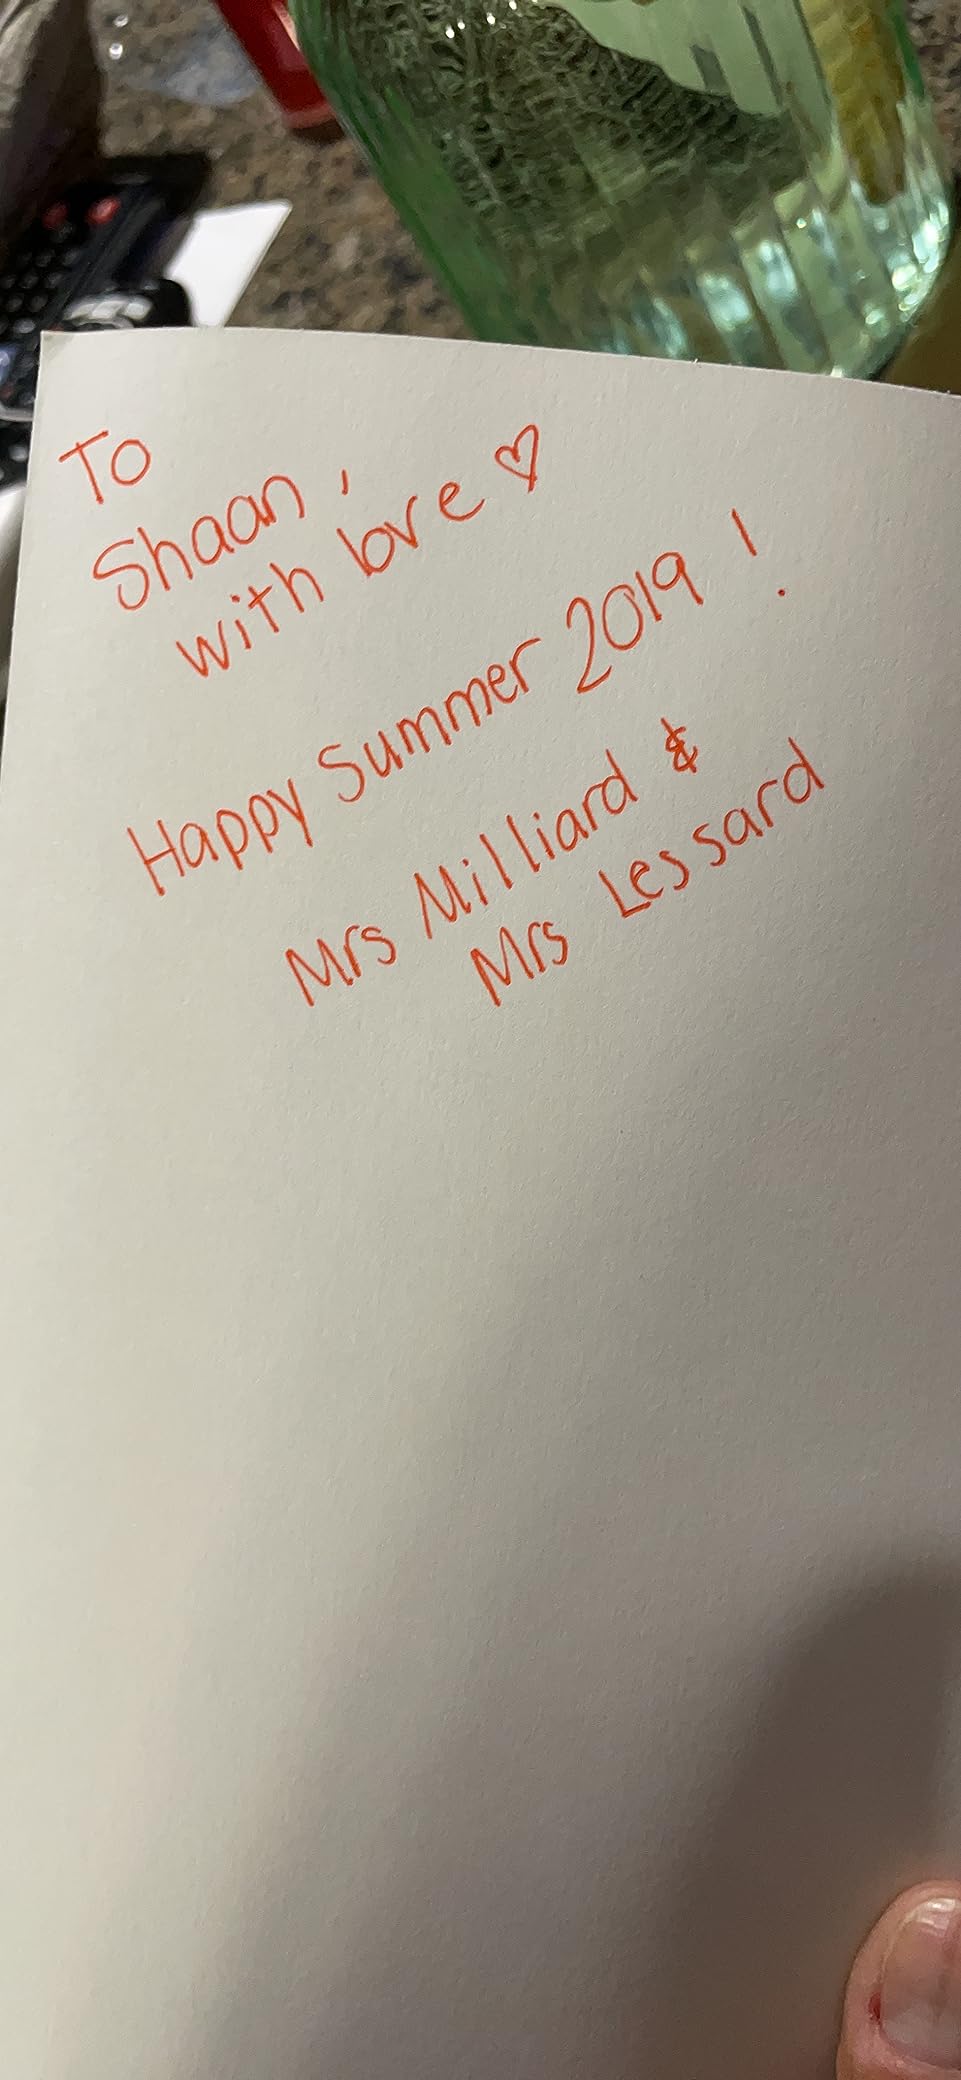 To
Shaan,
with love ♡
Happy Summer 2019!
Mrs Milliard &
Mrs Lessard